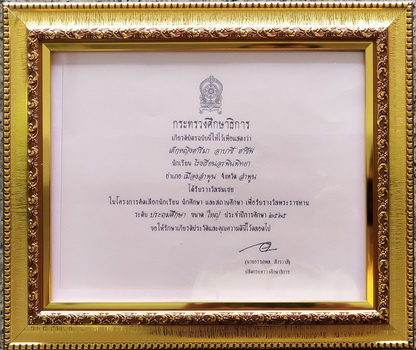 กระทรวงศึกษาธิการ
เกียรติบัตรฉบับนี้ให้ไว้เพื่อแสดงว่า
เด็กหญิงศรีมา
นักเรียน โรงเรียน
อำเภอ เมืองลำพูน จังหวัด ลำพูน
ได้รับรางวัลชมเชย
ในโครงการคัดเลือกนักเรียน นักศึกษา และสถานศึกษา เพื่อรับรางวัลพระราชทาน
ระดับ ประถมศึกษา ขนาด ใหญ่ ประจำปีการศึกษา
ขอให้รักษาเกียรติประวัติและคุณความดีนี้ไว้ตลอดไป
ปลัดกระทรวงศึกษาธิการ